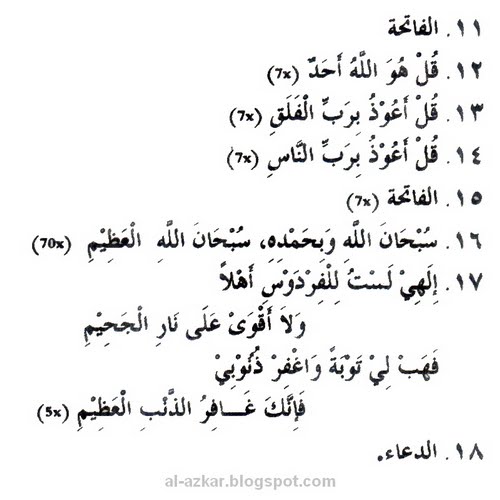 ١١. الفاتحة
١٢. قُلْ هُوَ اللَّهُ أَحَدٌ (7x)
١٣. قُلْ أَعُوْذُ بِرَبِّ الْفَلَقِ (7x)
١٤. قُلْ أَعُوْذُ بِرَبِّ النَّاسِ (7x)
١٥. الفاتحة (7x)
١٦. سُبْحَانَ اللَّهِ وَبِحَمْدِهِ، سُبْحَانَ اللَّهِ الْعَظِيْمِ (70x)
١٧. إِلَهِيْ لَسْتُ لِلْفِرْدَوْسِ أَهْلاً
وَلاَ أَقْوَىْ عَلَى نَارِ الْجَحِيْمِ
فَهَبْ لِيْ تَوْبَةً وَاغْفِرْ ذُنُوْبِيْ
فَإِنَّكَ غَافِرُ الذَّنْبِ الْعَظِيْمِ (5x)
١٨. الدعاء.
al-azkar.blogspot.com